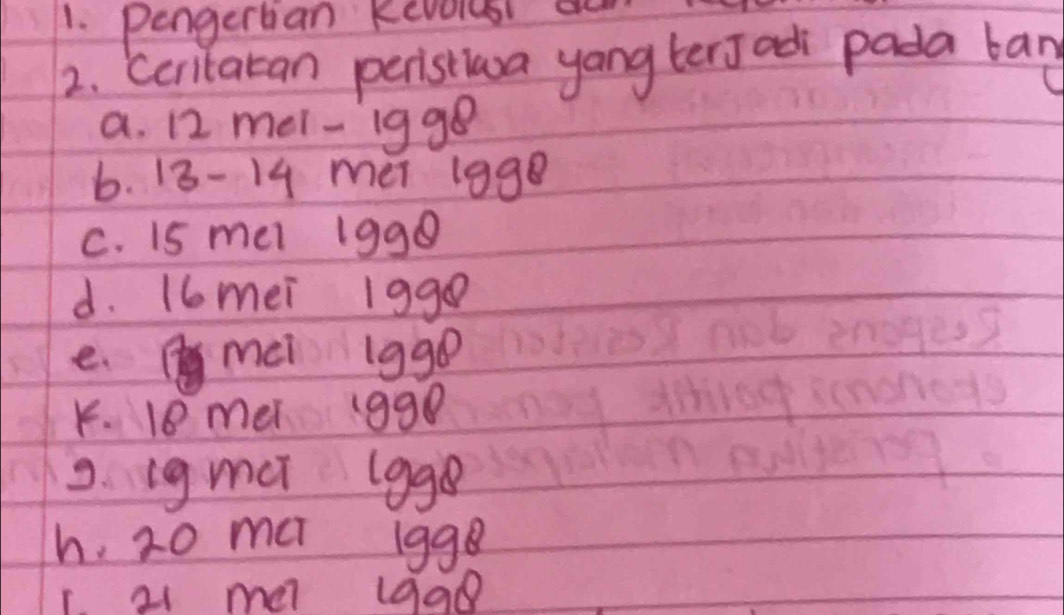 1. Pengertian Revolusi
2. Ceritakan peristiwa yang terjadi pada tang
a. 12 mei - 1998
b. 13-14 mei 1998
c. 15 mei 1998
d. 16 mei 1998
e. mei 1998
F. 18 mei 1998
g. 19 mei 1998
h. 20 mei 1998
i. 21 mei 1998